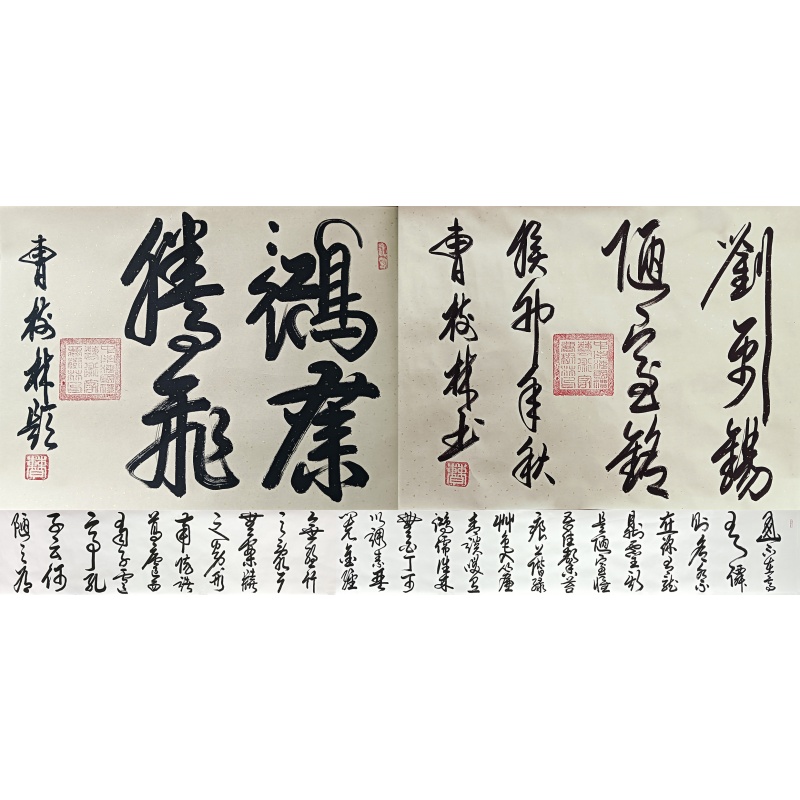 鴻業
騰飛
曹樹林題
劉禹錫
陋室銘
癸卯年秋
曹樹林書
山不在高
有僊
則名水不
在深有龍
則靈斯
是陋室惟
吾德馨苔
痕上階綠
艸色入簾
青談笑有
鴻儒往來
無白丁可
以調素琴
閱金經
無絲竹
之亂耳
無案牘
之勞形
南陽諸
葛廬西
蜀子雲
亭孔
子云何
陋之有